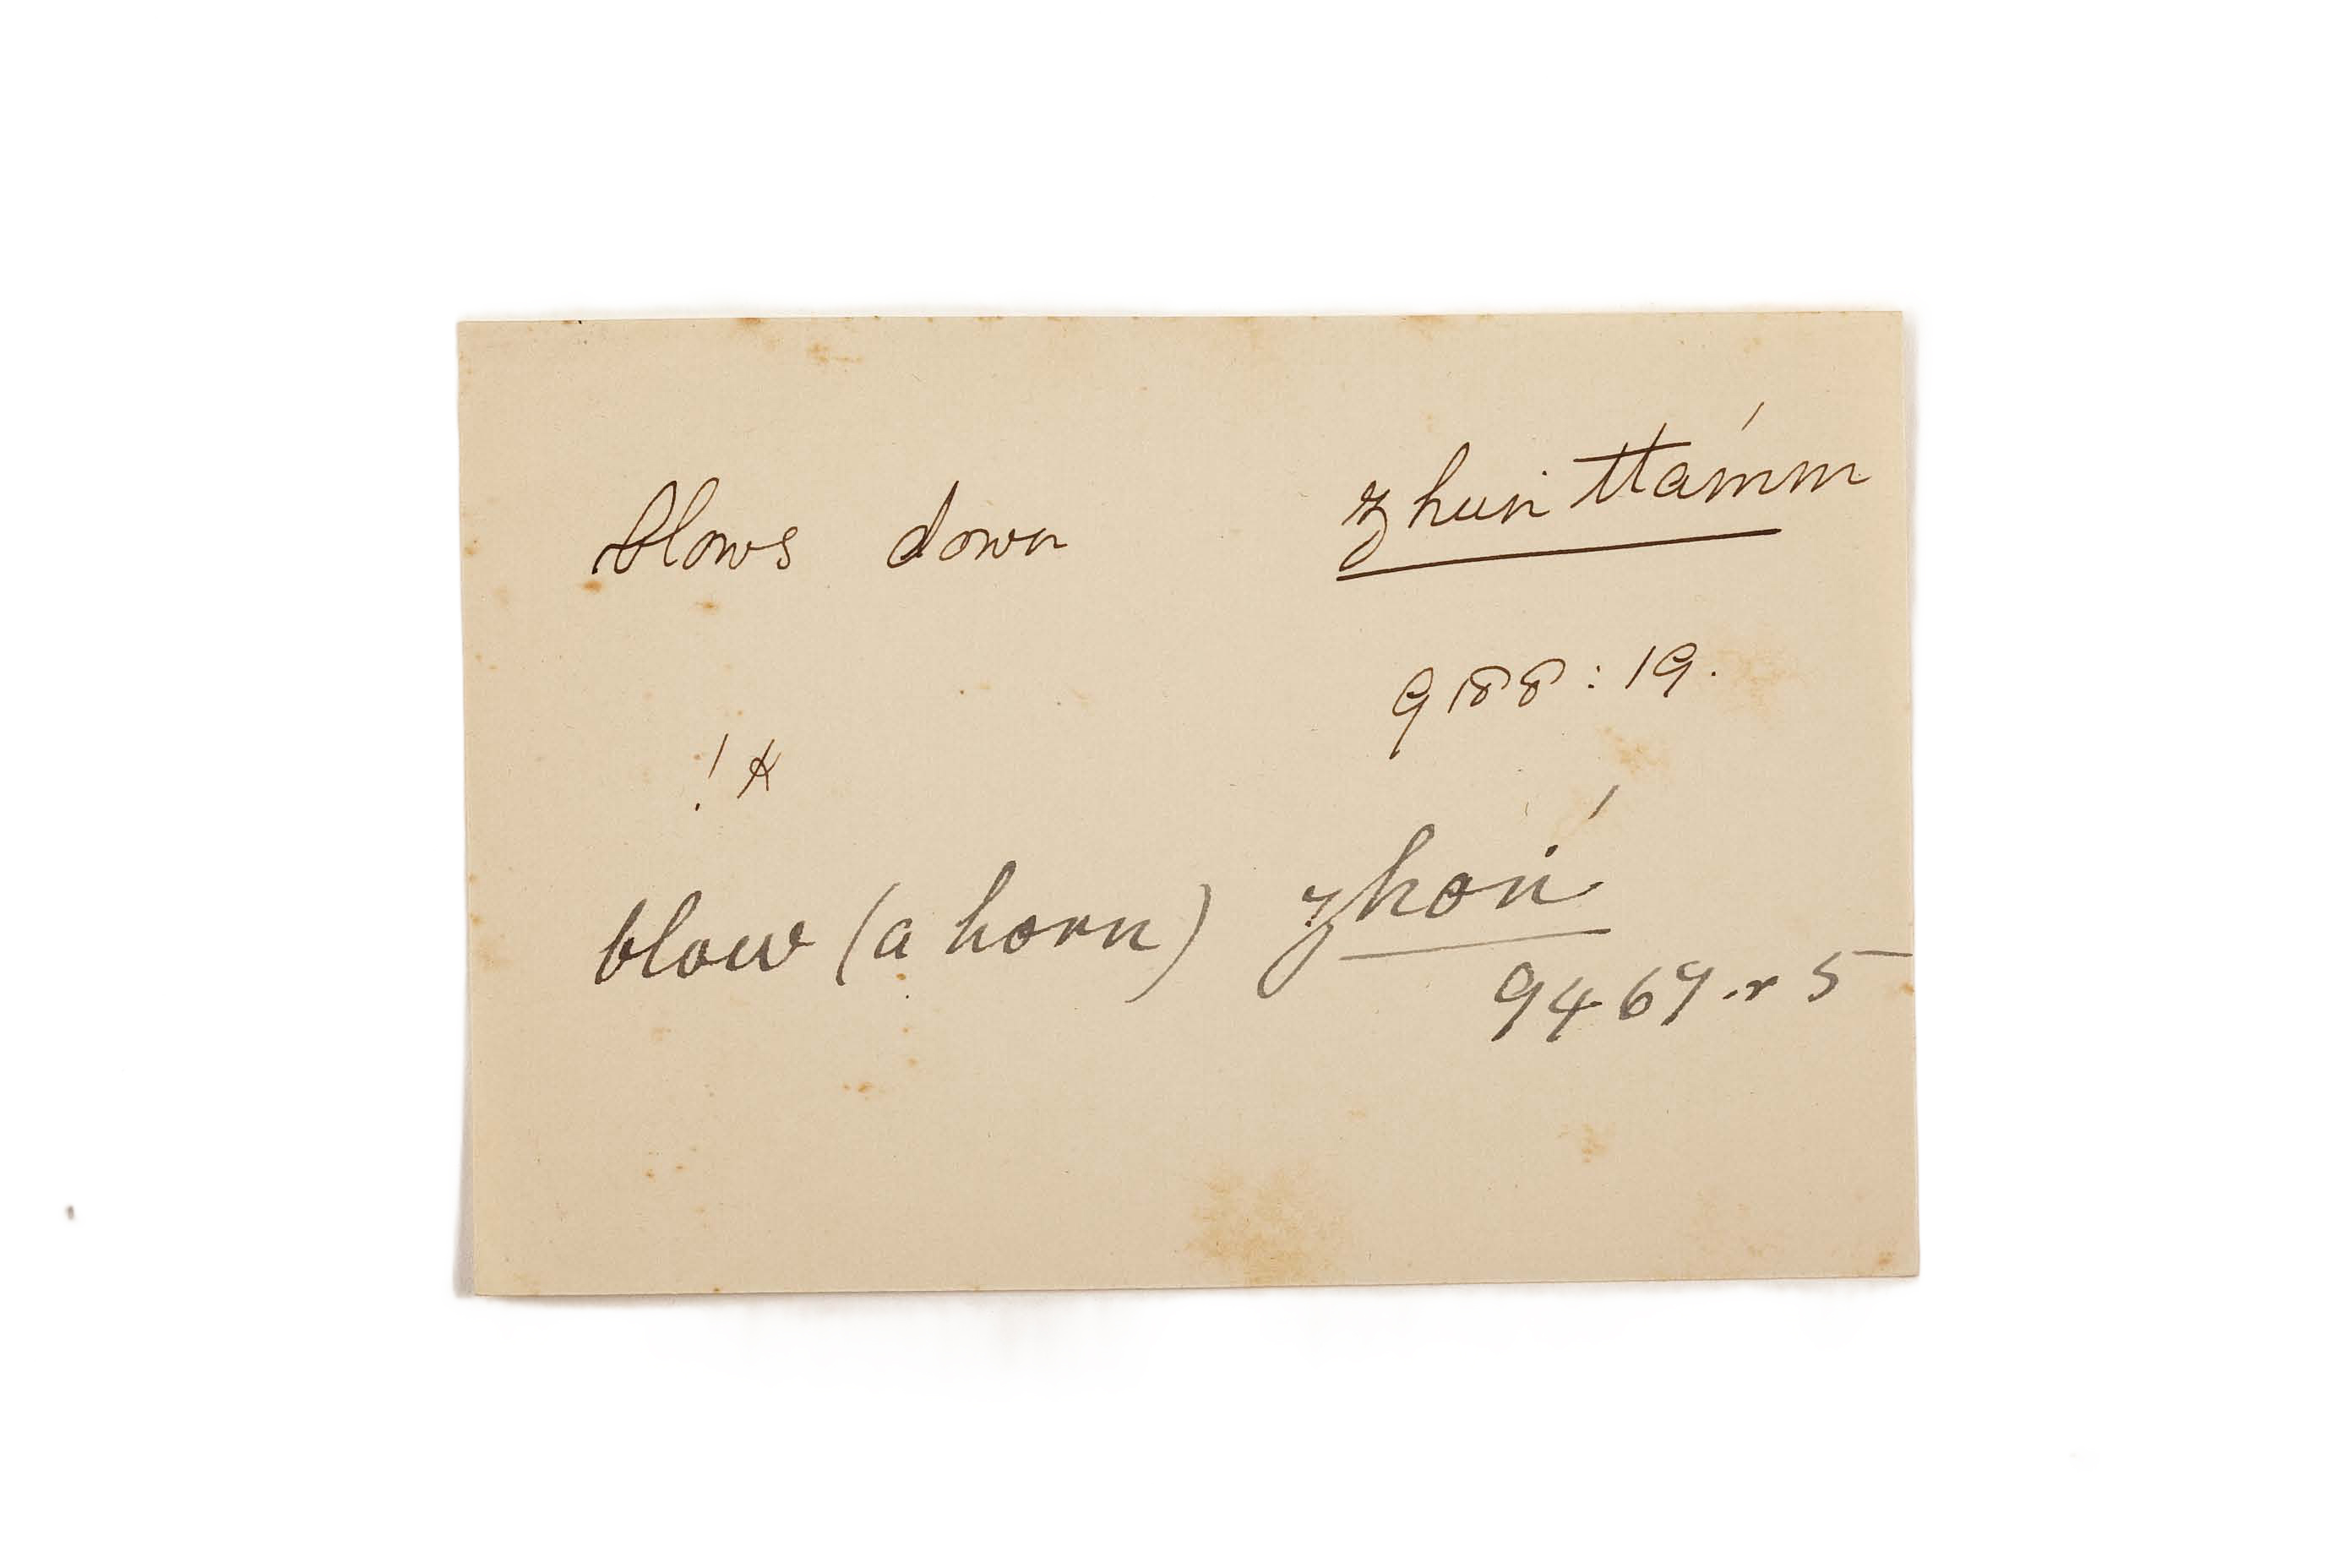 blows down ʒhuiï ttá́mm
9188 : 19.
! k
blow (a horn) ʒhoiń
9469.r 5